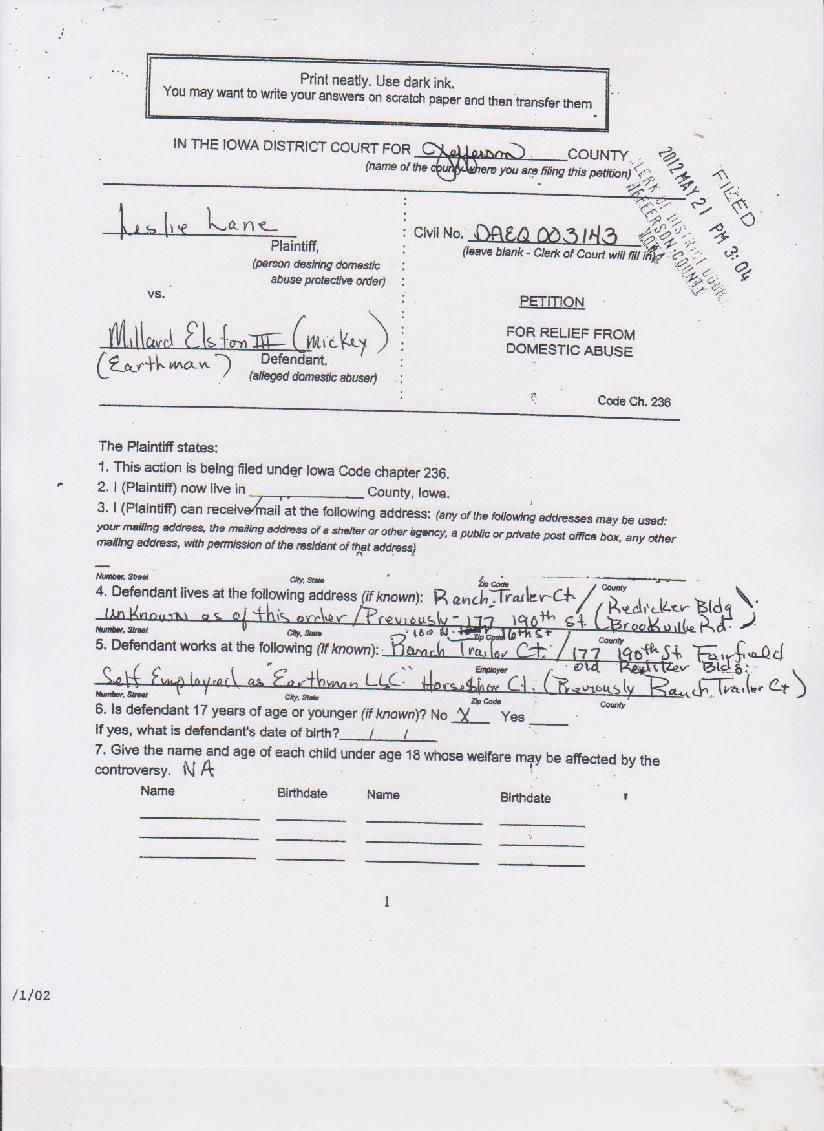 Print neatly. Use dark ink.
You may want to write your answers on scratch paper and then transfer them
IN THE IOWA DISTRICT COURT FOR Jefferson COUNTY
(name of the county where you are filing this petition)
FILED
2012 MAY 21 PM 3:04
CLERK OF DISTRICT COURT
JEFFERSON COUNTY
IOWA
Leslie Lane
Plaintiff,
(person desiring domestic
abuse protective order)
vs.
Millard Elston III (Mickey)
(Earthman) Defendant.
(alleged domestic abuser)
Civil No. DAEQ 003143
(leave blank - Clerk of Court will fill in)
PETITION
FOR RELIEF FROM
DOMESTIC ABUSE
Code Ch. 236
The Plaintiff states:
1. This action is being filed under Iowa Code chapter 236.
2. I (Plaintiff) now live in ____________ County, Iowa.
3. I (Plaintiff) can receive mail at the following address: (any of the following addresses may be used:
your mailing address, the mailing address of a shelter or other agency, a public or private post office box, any other
mailing address, with permission of the resident of that address)
Number, Street City, State Zip Code County
4. Defendant lives at the following address (if known): Ranch Trailer Ct / (Redicker Bldg
unknown as of this order / Previously - 177 190th St. Brookville Rd.)
Number, Street City, State Zip Code County
100 N. 16th St
5. Defendant works at the following (if known): Ranch Trailer Ct. / 177 190th St. Fairfield
Old Bldg.
Self Employed as "Earthman LLC" Horseshoe Ct. (Previously Ranch Trailer Ct)
Employer
Number, Street City, State Zip Code County
6. Is defendant 17 years of age or younger (if known)? No X Yes ____
If yes, what is defendant's date of birth? / /
7. Give the name and age of each child under age 18 whose welfare may be affected by the
controversy. NA
Name Birthdate Name Birthdate
1
/1/02